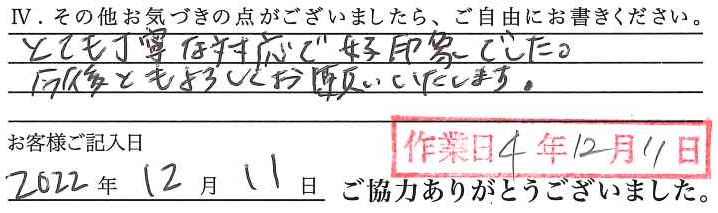 Ⅳ．その他お気づきの点がございましたら、ご自由にお書きください。
とても丁寧な対応で好印象でした。
今後ともよろしくお願いいたします。
お客様ご記入日
作業日4年12月11日
2022年12月11日
ご協力ありがとうございました。